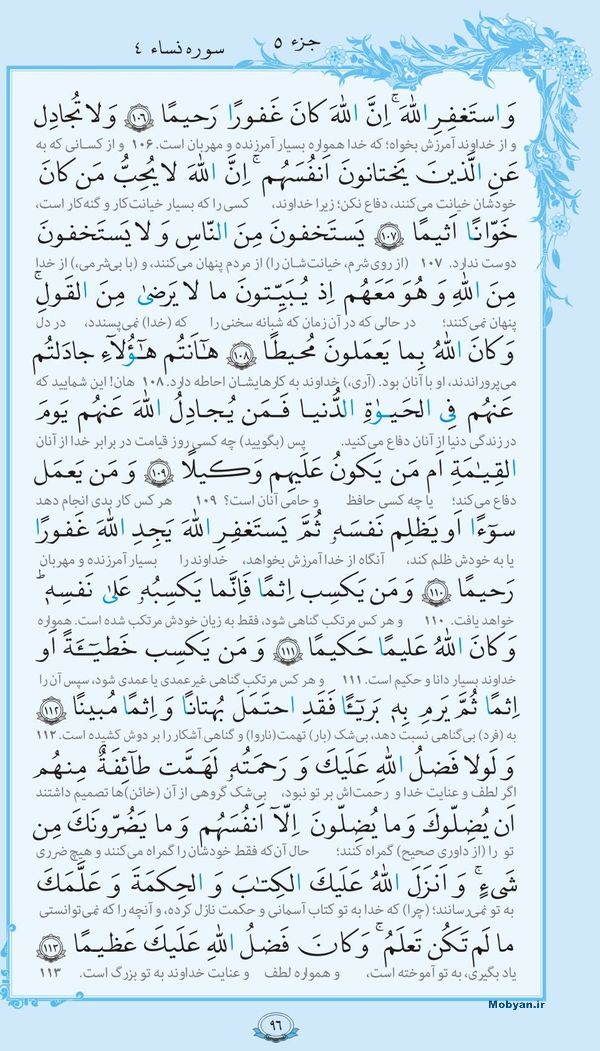 جزء ۵
سوره نساء ۴
وَ استَغفِرِ اللهَ ۚ اِنَّ اللهَ كانَ غَفورًا رَحيمًا ﴿۱۰۶﴾ وَ لا تُجادِل
و از خداوند آمرزش بخواه؛ که خدا همواره بسیار آمرزنده و مهربان است. ۱۰۶ و از کسانی که به
عَنِ الَّذينَ يَختانونَ اَنفُسَهُم ۚ اِنَّ اللهَ لا يُحِبُّ مَن كانَ
خودشان خیانت می‌کنند، دفاع نکن؛ زیرا خداوند، کسی را که بسیار خیانت‌کار و گنه‌کار است،
خَوّانًا اَثيمًا ﴿۱۰۷﴾ يَستَخفونَ مِنَ النّاسِ وَ لا يَستَخفونَ
دوست ندارد. ۱۰۷ (از روی شرم، خیانت‌شان را) از مردم پنهان می‌کنند، و (با بی‌شرمی،) از خدا
مِنَ اللهِ وَ هُوَ مَعَهُم اِذ يُبَيِّتونَ ما لا يَرضىٰ مِنَ القَولِ ۚ
پنهان نمی‌کنند؛ در حالی که در آن زمان که شبانه سخنی را که (خدا) نمی‌پسندد، در دل
وَ كانَ اللهُ بِما يَعمَلونَ مُحيطًا ﴿۱۰۸﴾ هٰاَنتُم هٰؤُلآءِ جادَلتُم
می‌پروراندند، او با آنان بود. (آری،) خداوند به کارهایشان احاطه دارد. ۱۰۸ هان! این شمایید که
عَنهُم فِى الحَيوٰةِ الدُّنيا فَمَن يُجادِلُ اللهَ عَنهُم يَومَ
در زندگی دنیا از آنان دفاع می‌کنید. پس (بگویید) چه کسی روز قیامت در برابر خدا از آنان
القِيٰمَةِ اَم مَن يَكونُ عَلَيهِم وَكيلًا ﴿۱۰۹﴾ وَ مَن يَعمَل
دفاع می‌کند؛ یا چه کسی حافظ و حامی آنان است؟ ۱۰۹ هر کس کار بدی انجام دهد
سوءًا اَو يَظلِم نَفسَهٗ ثُمَّ يَستَغفِرِ اللهَ يَجِدِ اللهَ غَفورًا
یا به خودش ظلم کند، آنگاه از خدا آمرزش بخواهد، خداوند را بسیار آمرزنده و مهربان
رَحيمًا ﴿۱۱۰﴾ وَ مَن يَكسِب اِثمًا فَاِنَّما يَكسِبُهٗ عَلىٰ نَفسِهٖ ۚ
خواهد یافت. ۱۱۰ و هر کس مرتکب گناهی شود، فقط به زیان خودش مرتکب شده است. همواره
وَ كانَ اللهُ عَليمًا حَكيمًا ﴿۱۱۱﴾ وَ مَن يَكسِب خَطيـئَةً اَو
خداوند بسیار دانا و حکیم است. ۱۱۱ و هر کس مرتکب گناهی غیرعمدی یا عمدی شود، سپس آن را
اِثمًا ثُمَّ يَرمِ بِهٖ بَريـئًا فَقَدِ احتَمَلَ بُهتانًا وَ اِثمًا مُبينًا ﴿۱۱۲﴾
به (فرد) بی‌گناهی نسبت دهد، بی‌شک (بار) تهمت(ناروا) و گناهی آشکار را بر دوش کشیده است. ۱۱۲
وَ لَولا فَضلُ اللهِ عَلَيكَ وَ رَحمَتُهٗ لَهَمَّت طائِفَةٌ مِنهُم
اگر لطف و عنایت خدا و رحمت‌اش بر تو نبود، بی‌شک گروهی از آن (خائن‌ها) تصمیم داشتند
اَن يُضِلّوكَ وَ ما يُضِلّونَ اِلّآ اَنفُسَهُم وَ ما يَضُرّونَكَ مِن
تو را (از داوری صحیح) گمراه کنند؛ حال آن‌که فقط خودشان را گمراه می‌کنند و هیچ ضرری
شَىءٍ ۚ وَ اَنزَلَ اللهُ عَلَيكَ الكِتٰبَ وَ الحِكمَةَ وَ عَلَّمَكَ
به تو نمی‌رسانند؛ (چرا) که خدا به تو کتاب آسمانی و حکمت نازل کرده، و آنچه را که نمی‌توانستی
ما لَم تَكُن تَعلَمُ ۚ وَ كانَ فَضلُ اللهِ عَلَيكَ عَظيمًا ﴿۱۱۳﴾
یاد بگیری، به تو آموخته است، و همواره لطف و عنایت خداوند به تو بزرگ است. ۱۱۳
۹۶
Mobyan.ir